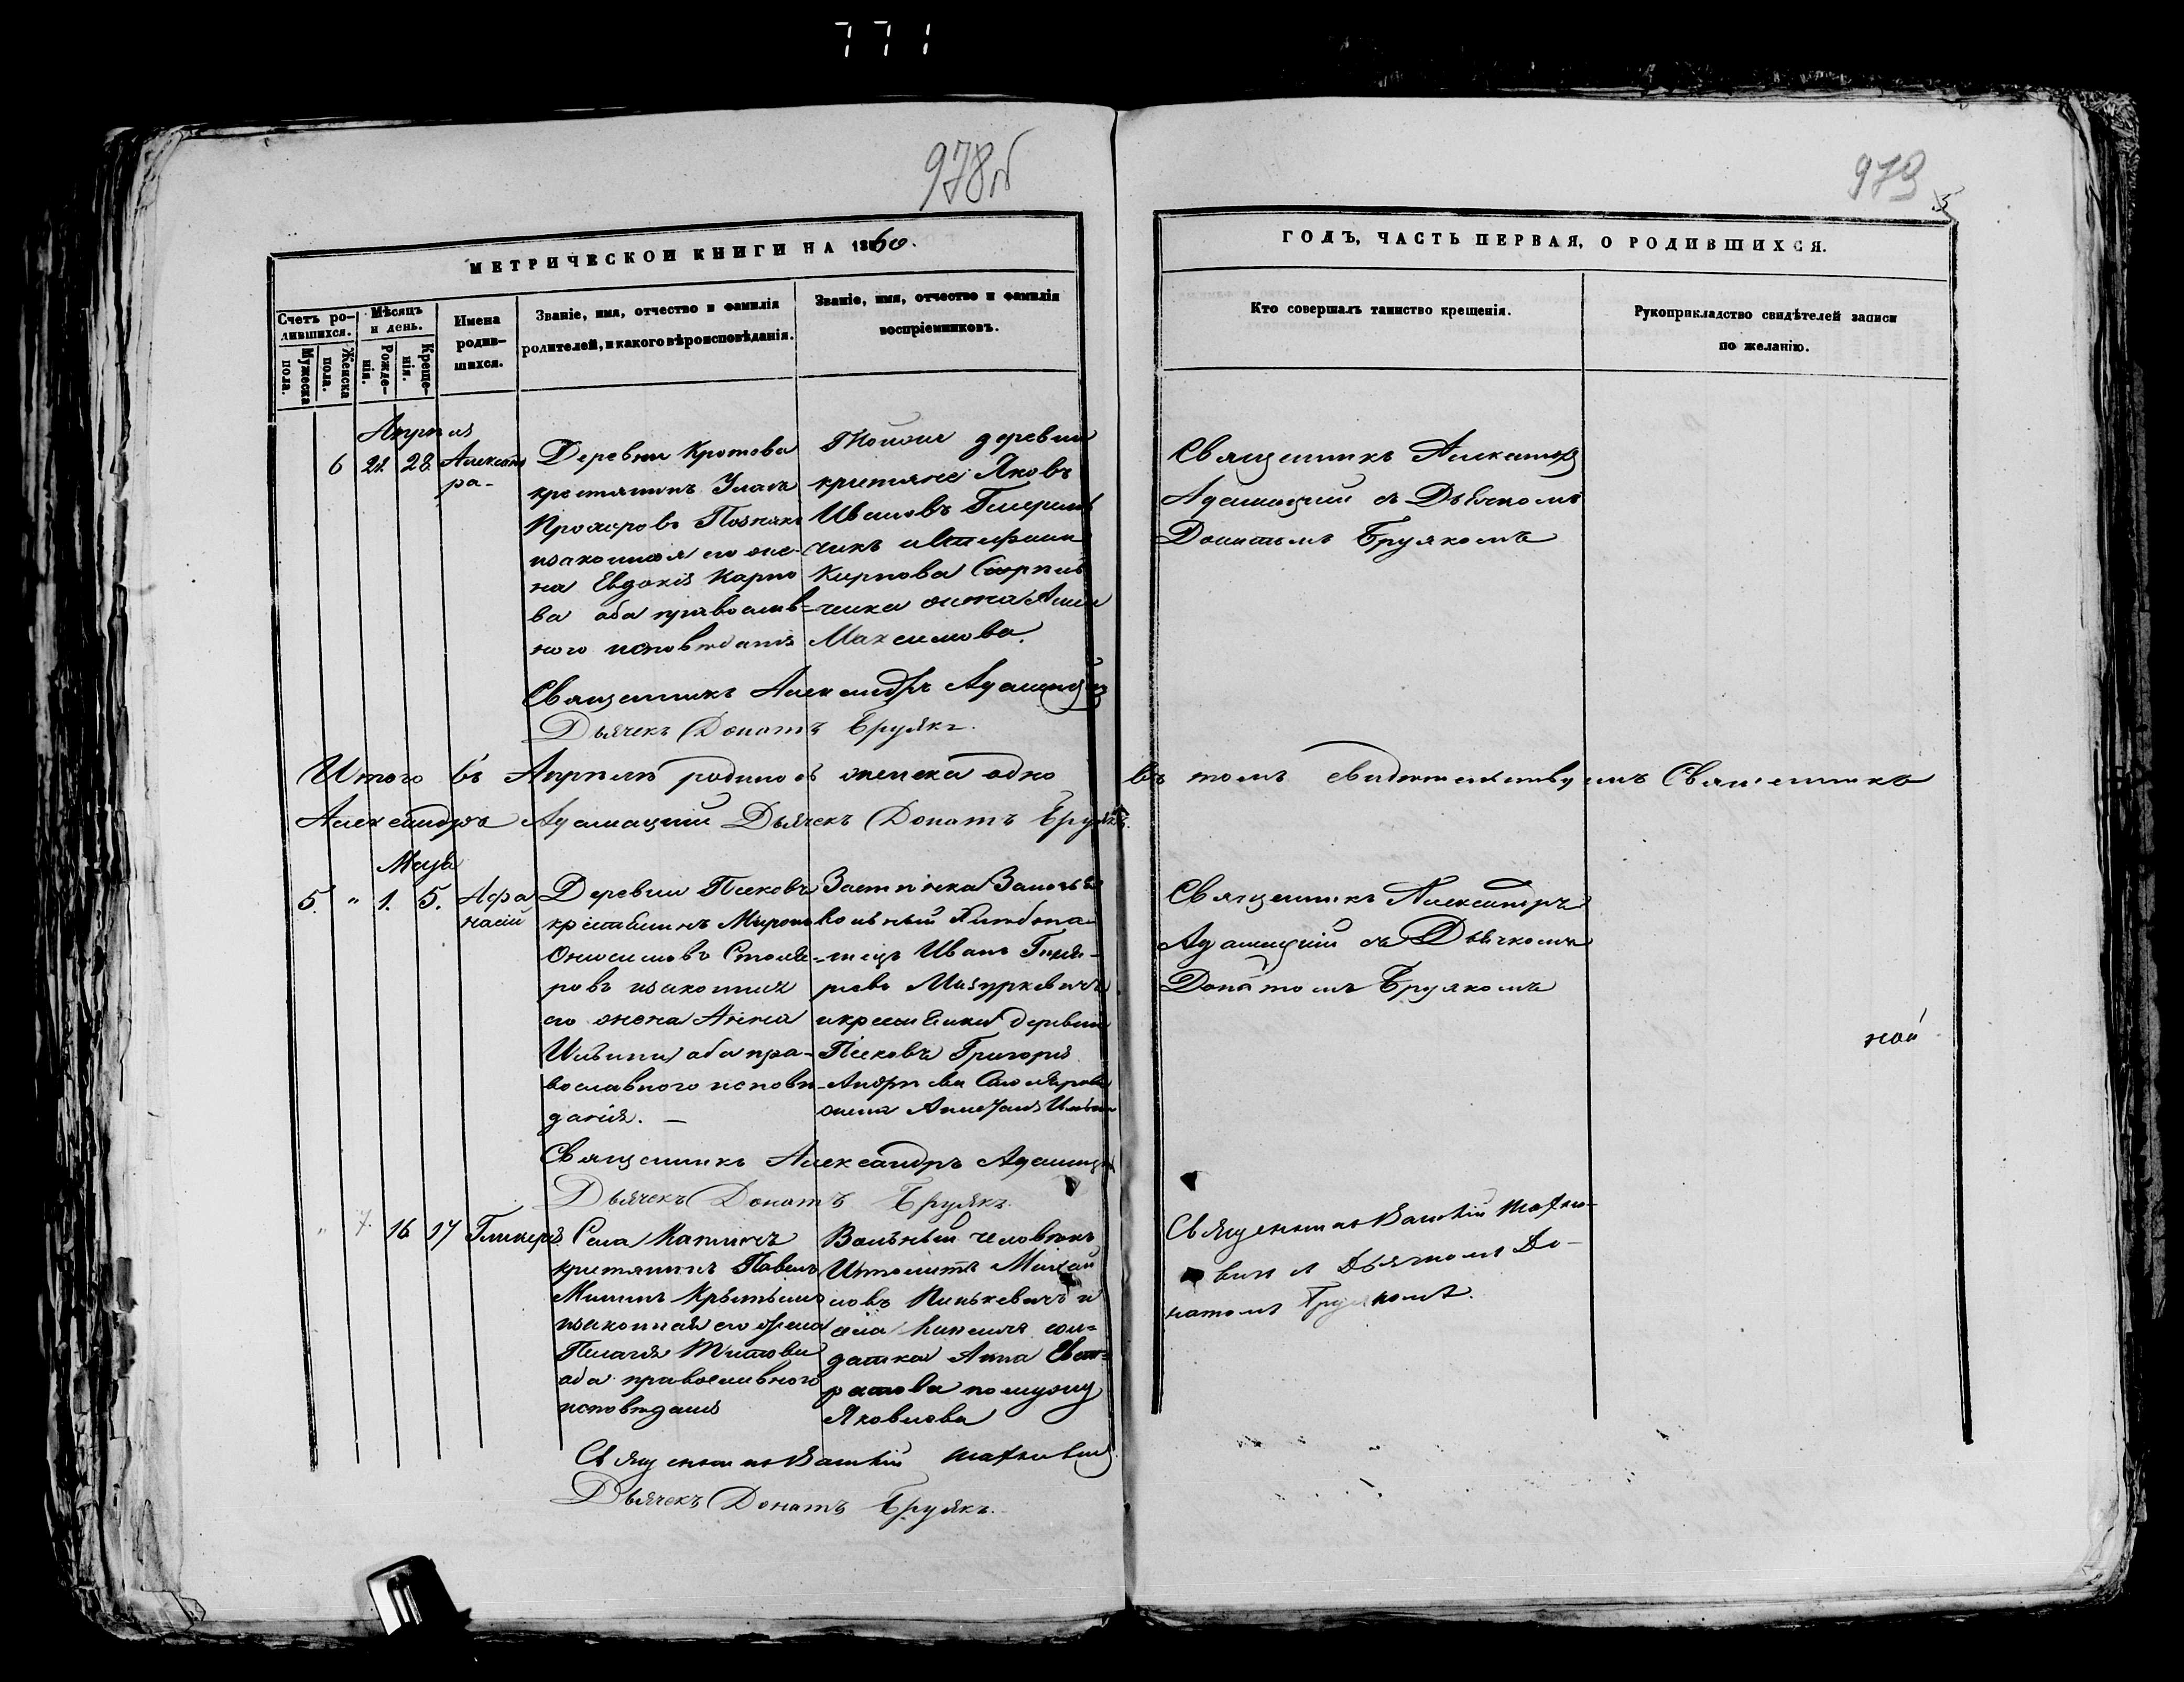 771
978б
979
МЕТРИЧЕСКОЙ КНИГИ НА 1860.
ГОДЪ, ЧАСТЬ ПЕРВАЯ, О РОДИВШИХСЯ.
Счетъ ро-
дившихся.
Мужеска
пола.
Женска
пола.
Мѣсяцъ
и день.
Рожде-
нія.
Креще-
нія.
Имена
родив-
шихся.
Званіе, имя, отчество и фамилія
родителей, и какого вѣроисповѣданія.
Званіе, имя, отчество и фамилія
воспріемниковъ.
Кто совершалъ таинство крещенія.
Рукоприкладство свидѣтелей записи
по желанію.
Апрѣля
6 22 28 Александ
ра-
Деревни Кротова
крестянинъ
Прохоровъ
изаконная его же-
на Евдокія Карпо
ва оба православ-
ного исповѣданія
Тойже деревни
крестяне Яковъ
Ивановъ
чикъ
Карпова
чика жена Анна
Максимова.
Священникъ Александръ
Адамицкій съ Дьячкомъ
Донатомъ Брудкомъ
Священникъ Александръ Адамицкій
Дьячекъ Донатъ Брудкъ.
Итого въ Апрѣлѣ родилось женска одно въ томъ свидѣтельствуемъ Священникъ
Александръ Адамицкій Дьячекъ Донатъ Брудкъ.
Мая
5. " 1. 5. Афа
насій
Деревни Песковъ
крестьянинъ Миронъ
Онисимовъ Столя-
ровъ изаконная
его жена Анна
оба пра-
вославного исповѣ-
данія. —
вольный
Иванъ
Мазуркевичъ
деревни
Песковъ Григорія
Андрѣева Столярова
жена
Священникъ Александръ
Адамицкій съ Дьячкомъ
Донатомъ Брудкомъ
ной
Священникъ Александръ Адамицкій
Дьячекъ Донатъ Брудкъ.
" 7. 16 17 Гликерія
Села
крестянинъ Павелъ
изаконная его жена
Пелагія Титова
оба православного
исповѣданія
Вольный человѣкъ
Михай
ловъ Пинькевичъ и
села сол-
датка Анна Евст-
ратова по мужу
Яковлева
Священникъ Василій
съ Дьячкомъ До-
натомъ Брудкомъ.
Священникъ Василій
Дьячекъ Донатъ Брудкъ.